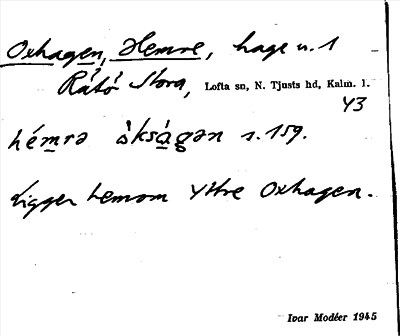 Oxhagen, Hemre, hage u. 1
Råtö Stora, Lofta sn, N. Tjusts hd, Kalm. l.
43
hémrə åkságən s. 159.
Ligger hemom Yttre Oxhagen.
Ivar Modéer 1945